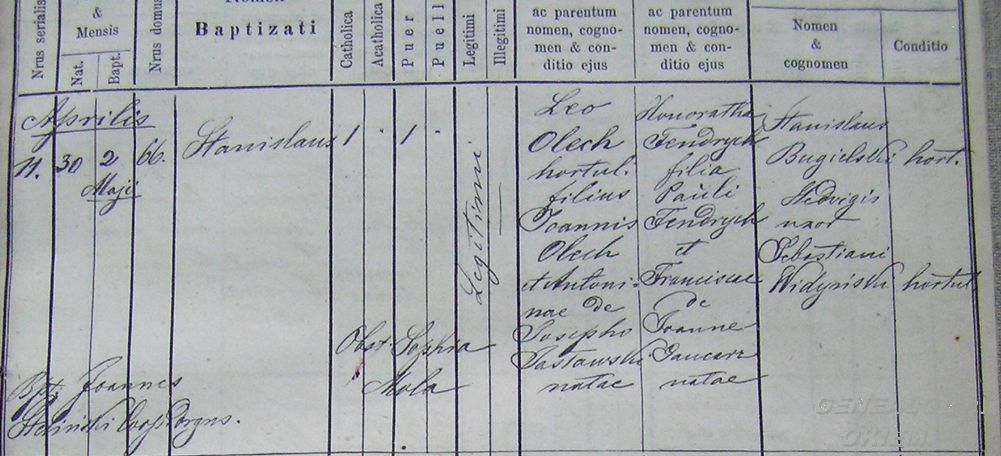 Nrus serialis
&
Mensis
Nat.
Bapt.
Nrus domus
Nomen
Baptizati
Catholica
Acatholica
Puer
Puell
Legitimi
Illegitimi
ac parentum
nomen, cogno-
men & con-
ditio ejus
ac parentum
nomen, cogno-
men & con-
ditio ejus
Nomen
&
cognomen
Conditio
Aprilis
11. 30 2 66. Stanislaus 1 " 1 "
Maji
Legitimi
Leo
Olech
hortul.
filius
Joannis
Olech
et Antoni-
nae de
Josepho
natae
Honoratha
Fendrych
filia
Pauli
Fendrych
et
Franciscae
de
Joanne
natae
Stanislaus
Bugielski hort.
Hedvigis
uxor
Sebastiani
hortul
Obst. Sophia
Mola
Bpt. Joannes